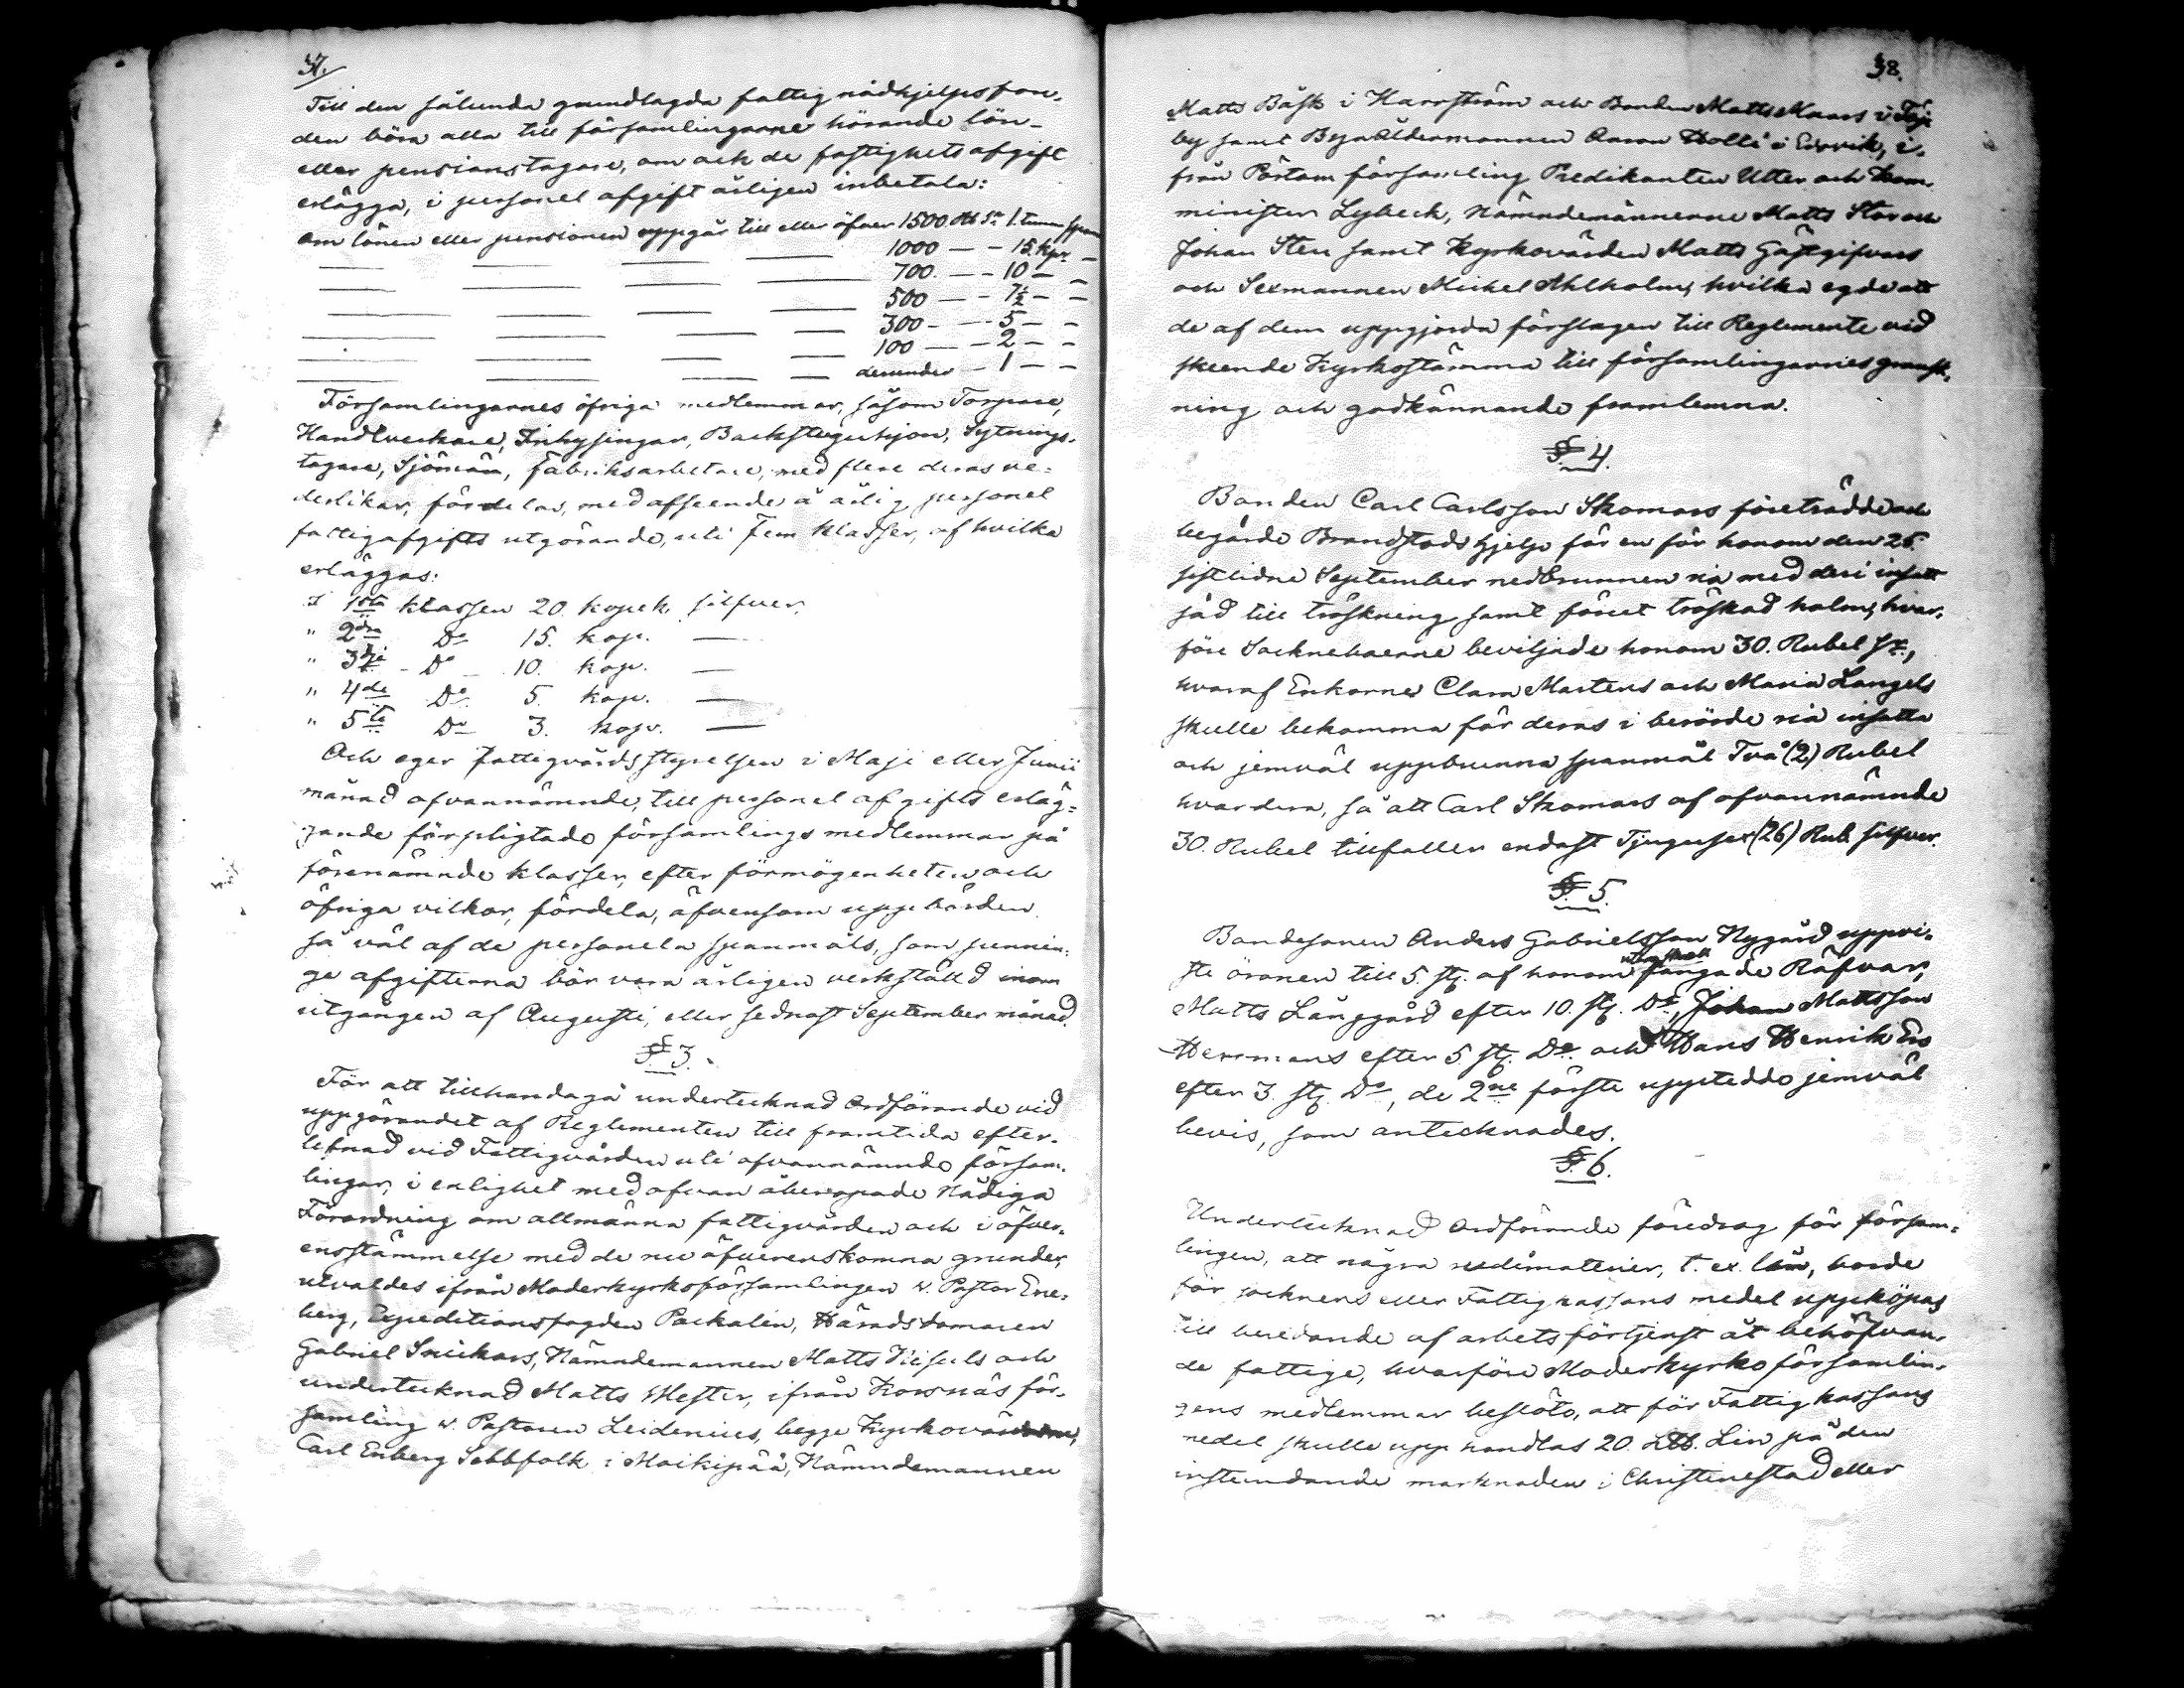 37.
Till den sålunda grundlagda fattig nådhjelpsfon-
den böra alla till församlingarne hörande lön-
eller pensionstagare, om ock de fastighets afgift
erlägga, i personel afgift årligen inbetala:
om lönen eller pensionen uppgår till eller öfver 1500 Rb Sr 1. tunna
— — — — 1000 — - 15. kpr —
— — — — 700. — - 10 — —
— — — — 500 — - 7½ — —
— — — — 300 - — 5 — -
— — — — 100 — — 2 — -
— — — — derunder — 1 — -
Församlingarnes öfriga medlemmar, såsom Torpare,
Handtverkare, Inhysingar, Backstuguhjon, Sytnings-
tagare, Sjömän, fabriksarbetare, med flere deras ve-
derlikar, fördelas, med afseende å årlig personel
fattigafgifts utgörande, uti Fem Klasser, af hvilka
erläggas:
I 1sta klassen 20. kopek silfver.
" 2dra Do 15. kop. —
" 3dje - Do - 10. kop. —
" 4de Do 5. kop. —
" 5te Do 3. kop. —
Och eger Fattigvårdsstyrelsen i Maji eller Junii
månad ofvannämnde, till personel afgifts erläg-
gande förpligtade församlings medlemmar på
förenämnde klasser, efter förmögenheten och
öfriga vilkor, fördela, äfvensom uppbörden
så väl af de personela spanmåls, som pennin-
ge afgifterna bör vara årligen verkställd inom
utgången af Augusti, eller sednast September månad.
§ 3.
För att tillhandagå undertecknad Ordförande vid
uppgörandet af Reglementen till framtida efter-
lefnad vid Fattigvården uti ofvannämnde försam-
lingar, i enlighet med ofvan åberopade Nådiga
Förordning om allmänna fattigvården och i öfver-
ensstämmelse med de nu öfverenskomna grunder,
utvaldes ifrån Moderkyrkoförsamlingen v. Pastor Ene-
berg, Expeditionsfogden Packalén, Häradsdomaren
Gabriel Snickars, Nämndemannen Matts och
undertecknad Matts Mester, ifrån Korsnäs för-
samling v. Pastoren Leidenius, begge Kyrkovärdarne,
Carl Enberg Sebbfolk i Moikipää, Nämndemannen
38.
Matts Båsk i Harrström och Bonden Matts Maars i Töje
by samt Byn ÅIdermannen Aaron Holli i Edsvik, i-
från Pörtom församling Predikanten Utter och kom-
minister Lybeck, Nämndemännerne Matts Stor och
Johan Sten samt Kyrkovärden Matts Gästgifvars
och Sexmannen Mickel Ahlholm, hvilka egde att
de af dem uppgjorda förslagen till Reglemente vid
skeende Kyrkostämma till församlingarnes gransk-
ning och godkännande framlemna.
§ 4.
Bonden Carl Carlsson Skomars företrädde och
begärde Brandstods hjelp för en för honom den 25.
sistlidne September nedbrunnen ria med deri insatt
säd till tröskning samt förut tröskad halm, hvar-
före Sockneboerne beviljade honom 30. Rubel Sr.,
hvaraf Enkorne Clara Martens och Maria Langels
skulle bekomma för deras i berörde ria insatta
och jemväl uppbrunna spanmål Två (2) Rubel
hvardera, så att Carl Skomars af ofvannämnde
30. Rubel tillfaller endast Tjugusex (26) Rub. silfver.
§ 5.
Bondesonen Anders Gabrielsson Nygård uppvi-
ste öronen till 5. st. af honom fångade Räfvar,
Matts Långgård efter 10. st. Do, Johan Mattsson
Hermans efter 5. st. Do och Hans Henrik Ers
efter 3. st. Do, de 2ne förste uppteddo jemväl
bevis, som antecknades.
§ 6.
Undertecknad Ordförande föredrog för försam-
lingen, att några rudimaterier, t. ex. Lin, borde
för socknens eller Fattigkassans medel uppköpas
till beredande af arbetsförtjenst åt behöfvan-
de fattige, hvarföre Moderkyrkoförsamlin-
gens medlemmar beslöto, att för Fattigkassans
medel skulle upphandlas 20. L℔. Lin på den
instundande marknaden i Christinestad eller